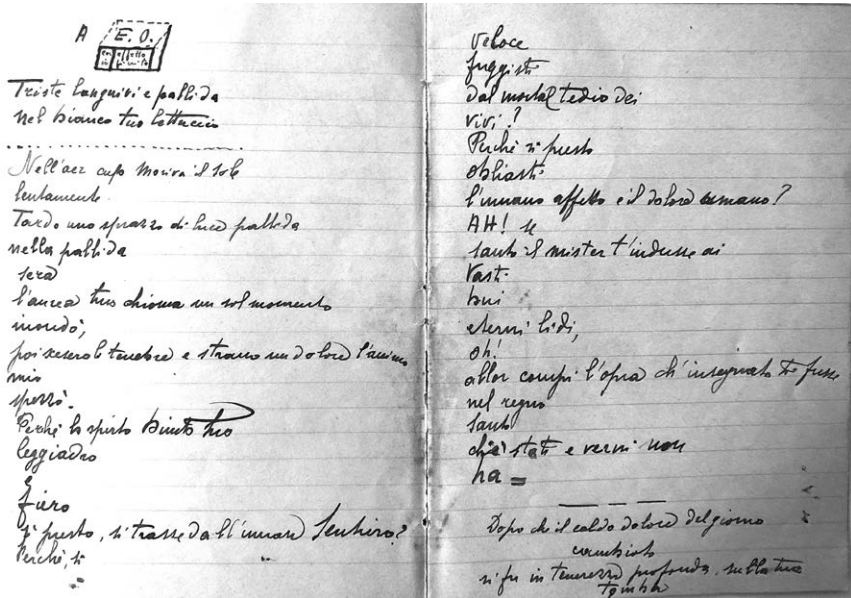 A E. O.
Triste languivi e pallida
nel bianco tuo lettuccio
Nell'aer cupo moriva il sole
lentamente.
Tardo uno sprazzo di luce pallida
nella pallida
sera
l'aurea tua chioma un sol momento
inondò,
poi scesero le tenebre e strano un dolore l'animo
mio
spezzò.
Perchè lo spirto tuo
leggiadro
E
fiero
sì presto, si trasse dall'umano Sentiero?
Perchè, sì
veloce
fuggisti
dal mortal tedio dei
vivi?
Perchè sì presto
obliasti
l'umano affetto e il dolore umano?
AH! se
tanto il mister t'indusse ai
Vasti
bui
eterni lidi,
oh!
allor compi l'opra ch'insegnato ti fusse
nel regno
santo
che stati e vermi non
ha =
Dopo che il caldo dolore del giorno
cambiato
si fu in tenerezza profonda, sulla tua
tomba